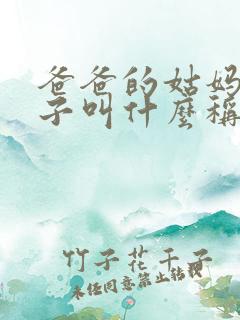 爸爸的姑妈
子叫什麼稱
竹子花千子
未经同意禁止转载